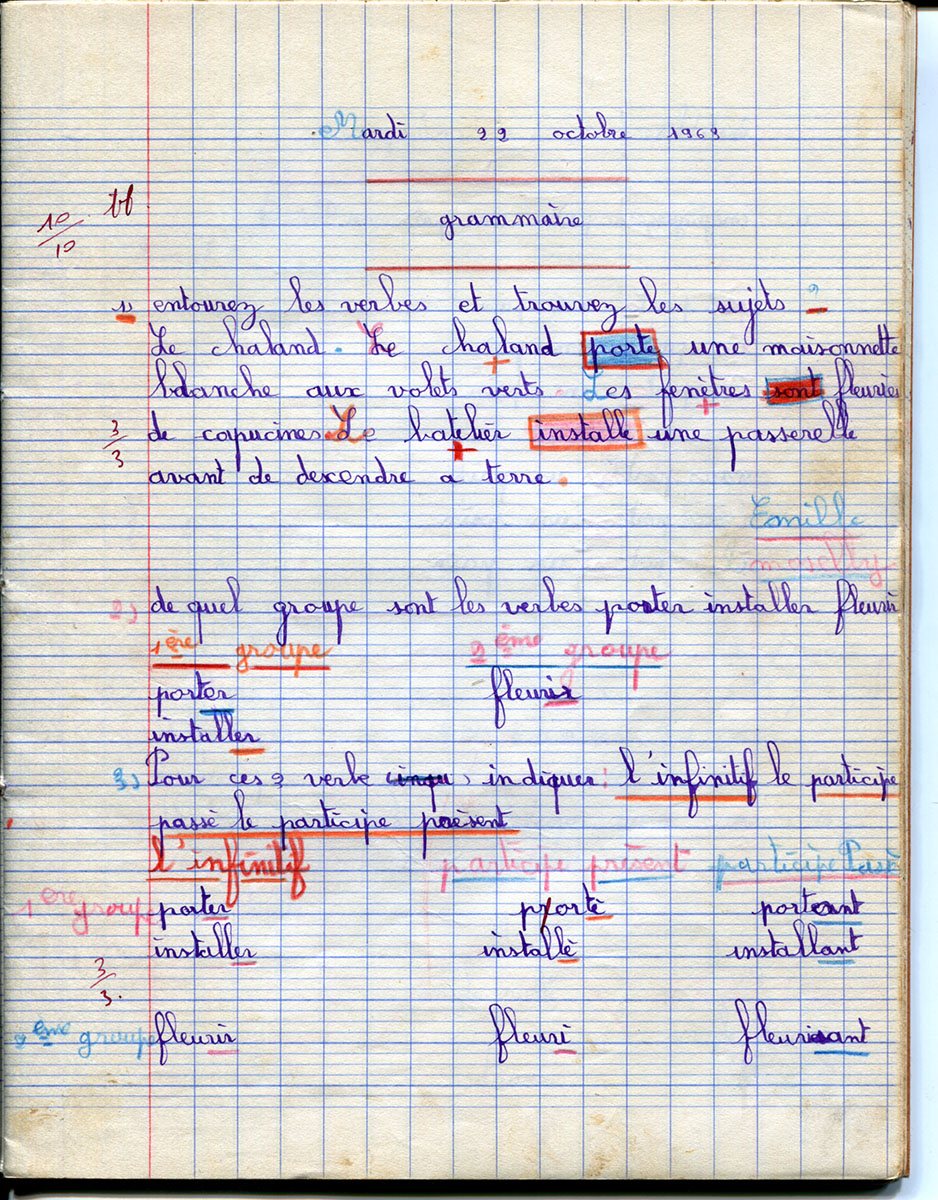 Mardi 22 octobre 1968
grammaire
10/10 tb
1) entourez les verbes et trouvez les sujets ?
Le chaland. Le chaland porte une maisonnette
blanche aux volts verts. Les fenêtres sont fleuries
3/3 de capucines. Le batelier installe une passerelle
avant de descendre a terre.
Emille
moselly
2) de quel groupe sont les verbes porter installer fleurir
1ère groupe 2ème groupe
porter fleurir
installer
3) Pour ces 3 verbe indiquer : l'infinitif le participe
passè le participe présent
l'infinitif participe présent participe Passé
1ere group porter porté portant
installer installé installant
3/3.
2ème groupe fleurir fleuri fleurissant